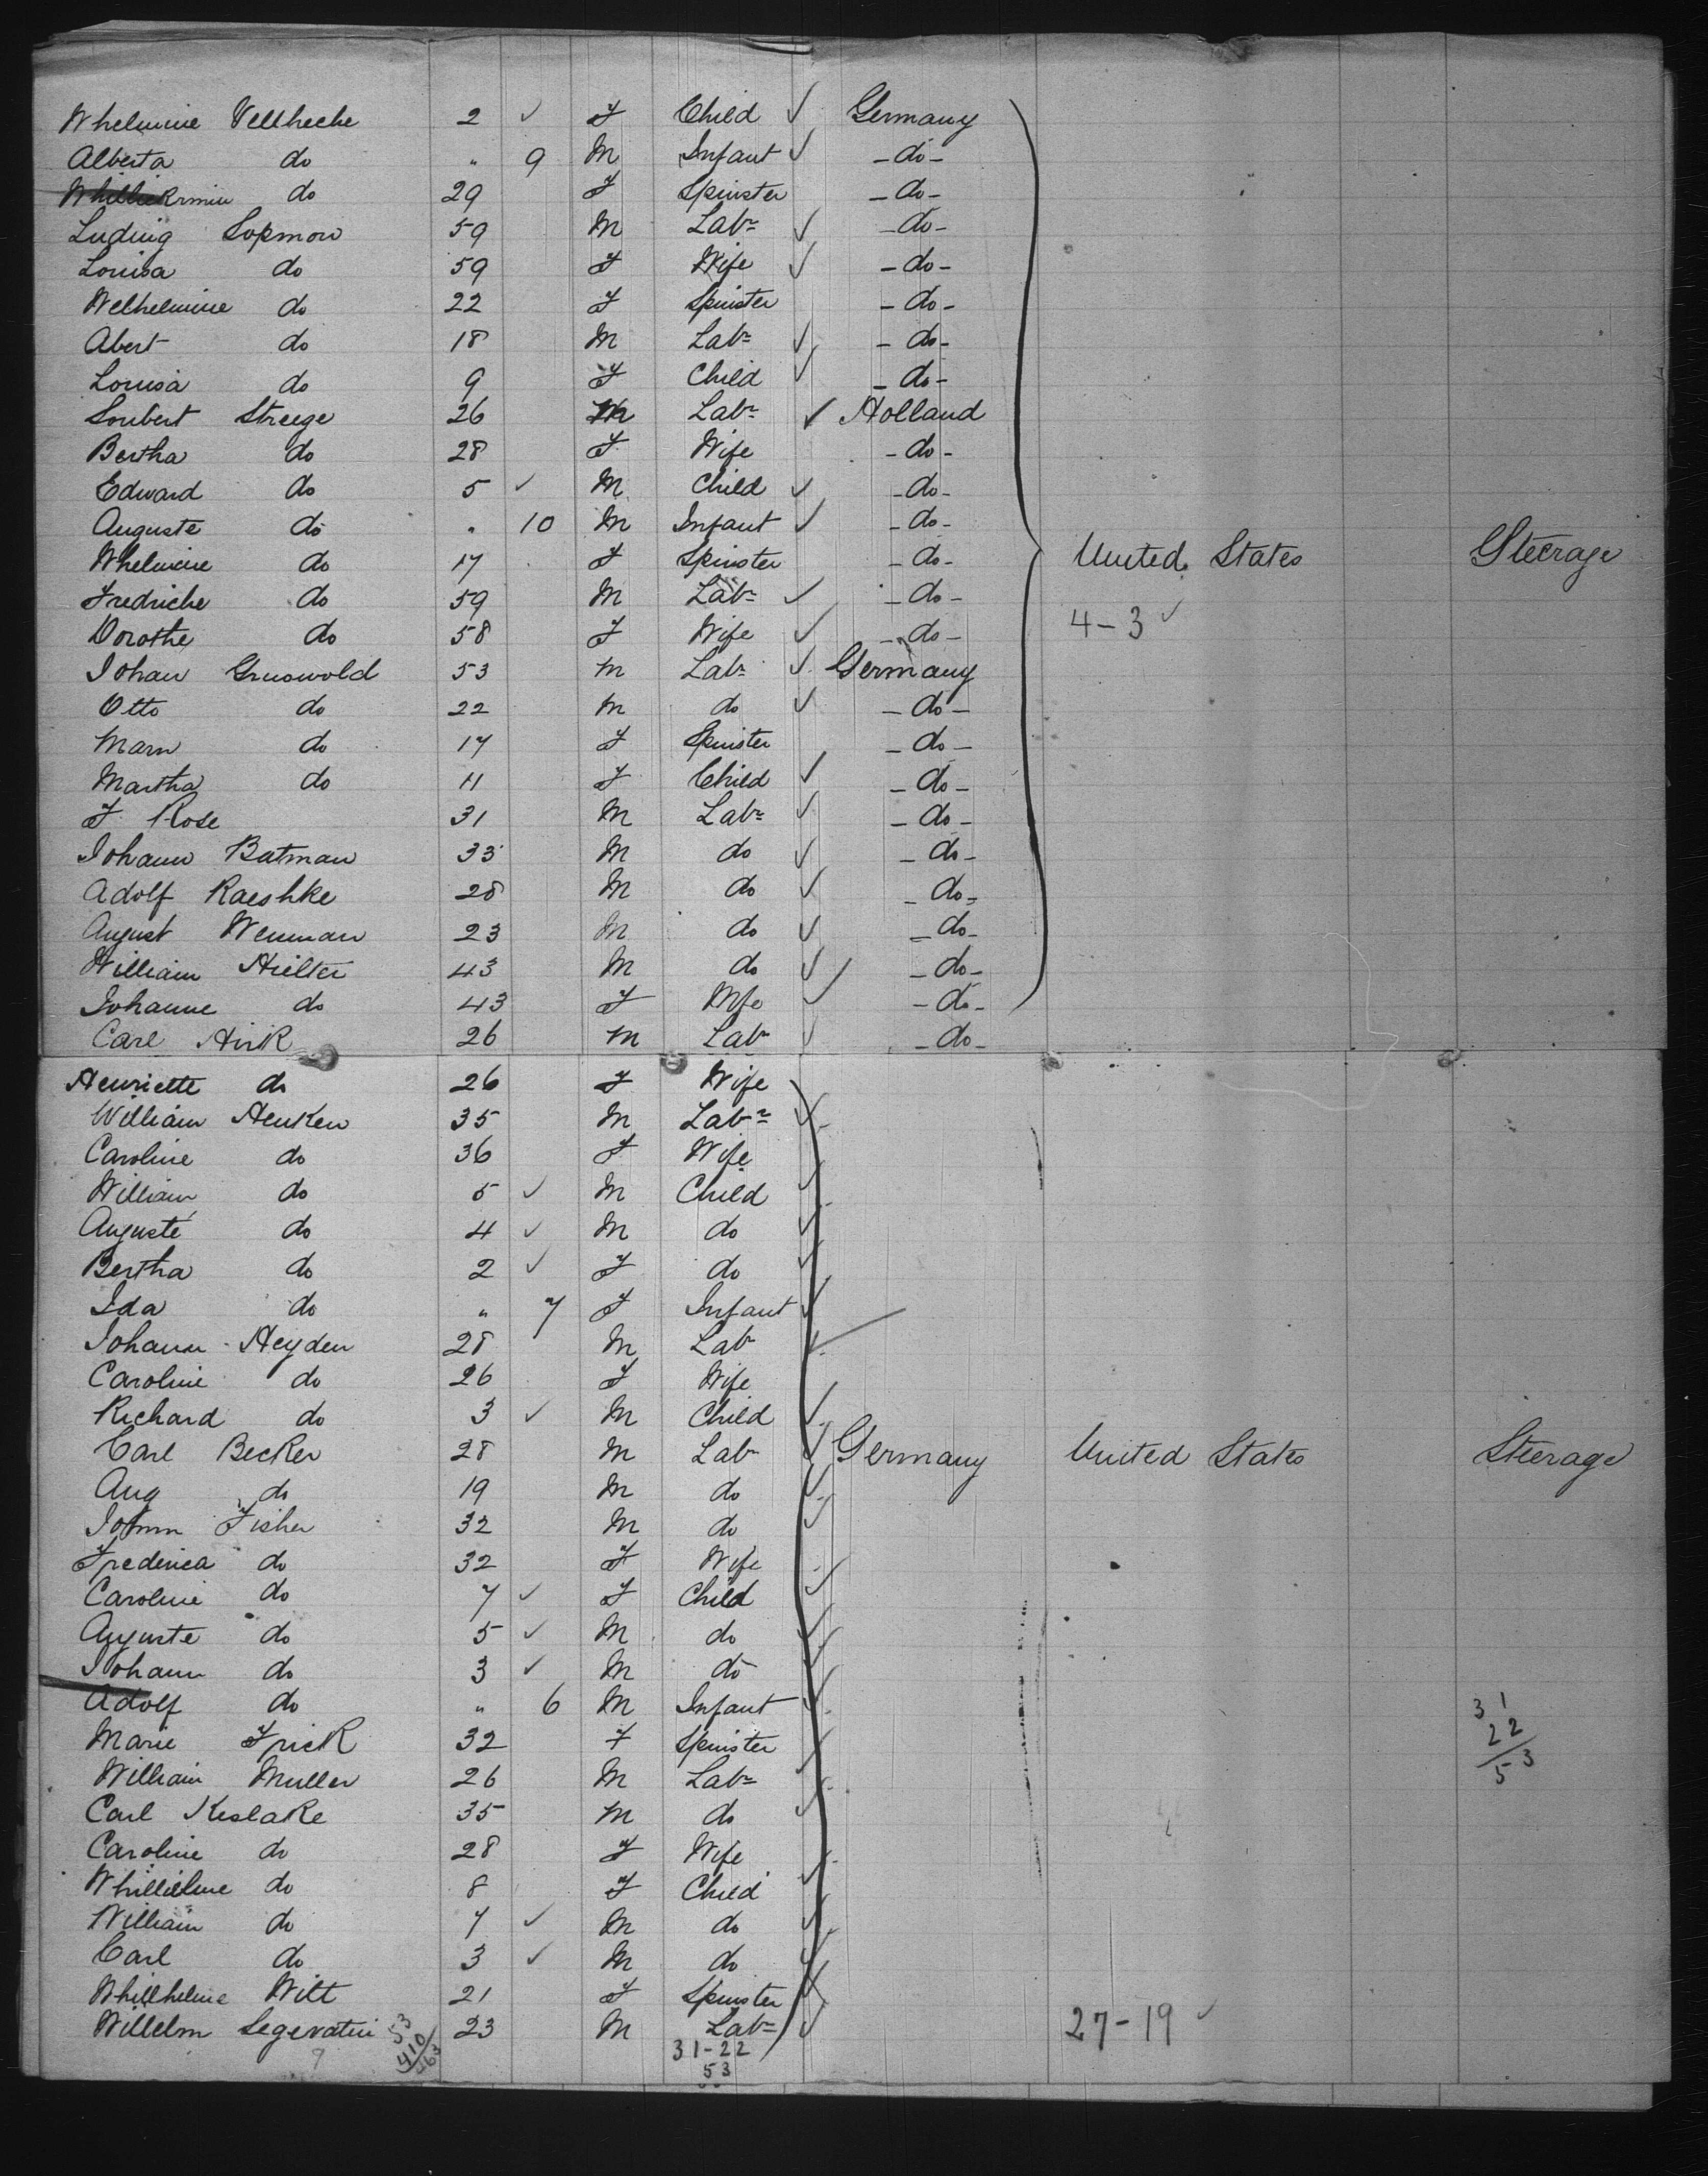 Whelmine Vellheche 2 ✓ F Child ✓ Germany
Alberta do " 9 M Infant ✓ - do -
do 29 F Spinster - do -
Luding Sopmow 59 M Labr ✓ - do -
Louisa do 59 F Wife ✓ - do -
Welhelmine do 22 F Spinster - do -
Abert do 18 M Labr ✓ - do -
Louisa do 9 F Child ✓ - do -
Soubert Streege 26 M Labr ✓ Holland
Bertha do 28 F Wife - do -
Edward do 5 ✓ M Child ✓ - do -
Auguste do " 10 M Infant ✓ - do -
Whelmine do 17 F Spinster - do - United States Steerage
Fredriche do 59 M Labr ✓ - do -
Dorothe do 58 F Wife ✓ - do - 4-3 ✓
Johan Gruswold 53 M Labr ✓ Germany
Otto do 22 M do ✓ - do -
Marn do 17 F Spinster - do -
Martha do 11 F Child ✓ - do -
F Rose 31 M Labr ✓ - do -
Johann Batman 33 M do ✓ - do -
Adolf Raeshke 28 M do ✓ - do -
August Wenman 23 M do ✓ - do -
William Hilter 43 M do ✓ - do -
Johanne do 43 F Wife ✓ - do -
Carl Hirk 26 M Labr ✓ - do -
Henriette do 26 F Wife
William Henken 35 M Labr ✓
Caroline do 36 F Wife
William do 5 ✓ M Child ✓
Auguste do 4 ✓ M do ✓
Bertha do 2 ✓ F do ✓
Ida do " 7 F Infant ✓
Johann Heyden 28 M Labr ✓
Caroline do 26 F Wife
Richard do 3 ✓ M Child ✓
Carl Becker 28 M Labr ✓ Germany United States Steerage
Aug do 19 M do ✓
Johann Fisher 32 M do ✓
Frederica do 32 F Wife
Caroline do 7 ✓ F Child ✓
Auguste do 5 ✓ M do ✓
Johann do 3 ✓ M do ✓
Adolf do " 6 M Infant ✓ 31
Marie Frick 32 F Spinster 22
William Muller 26 M Labr ✓ 53
Carl Keslake 35 M do ✓
Caroline do 28 F Wife
do 8 F Child ✓
William do 7 ✓ M do ✓
Carl do 3 ✓ M do ✓
Whillhelmie Wilt 21 F Spinster
Willelm 23 M Labr ✓ 27-19 ✓
53
410
463
31-22
53